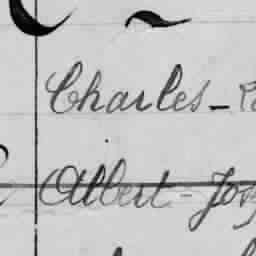 Charles -
Albert - Jos